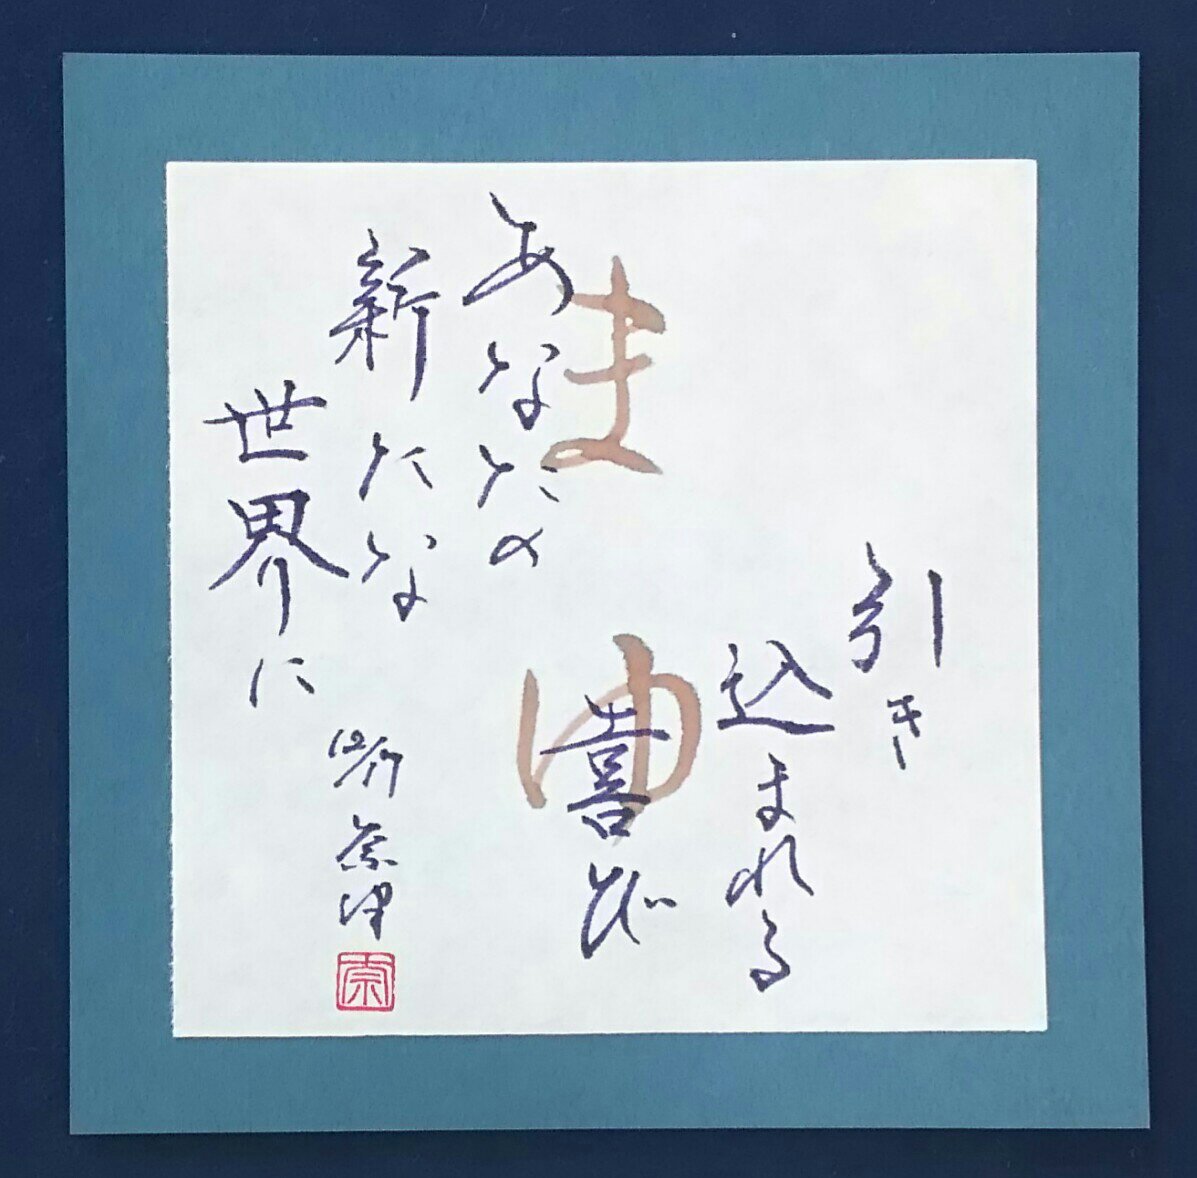 まゆ
あなたの
新たな
世界に
引き
込まれる
喜び
奈津
奈